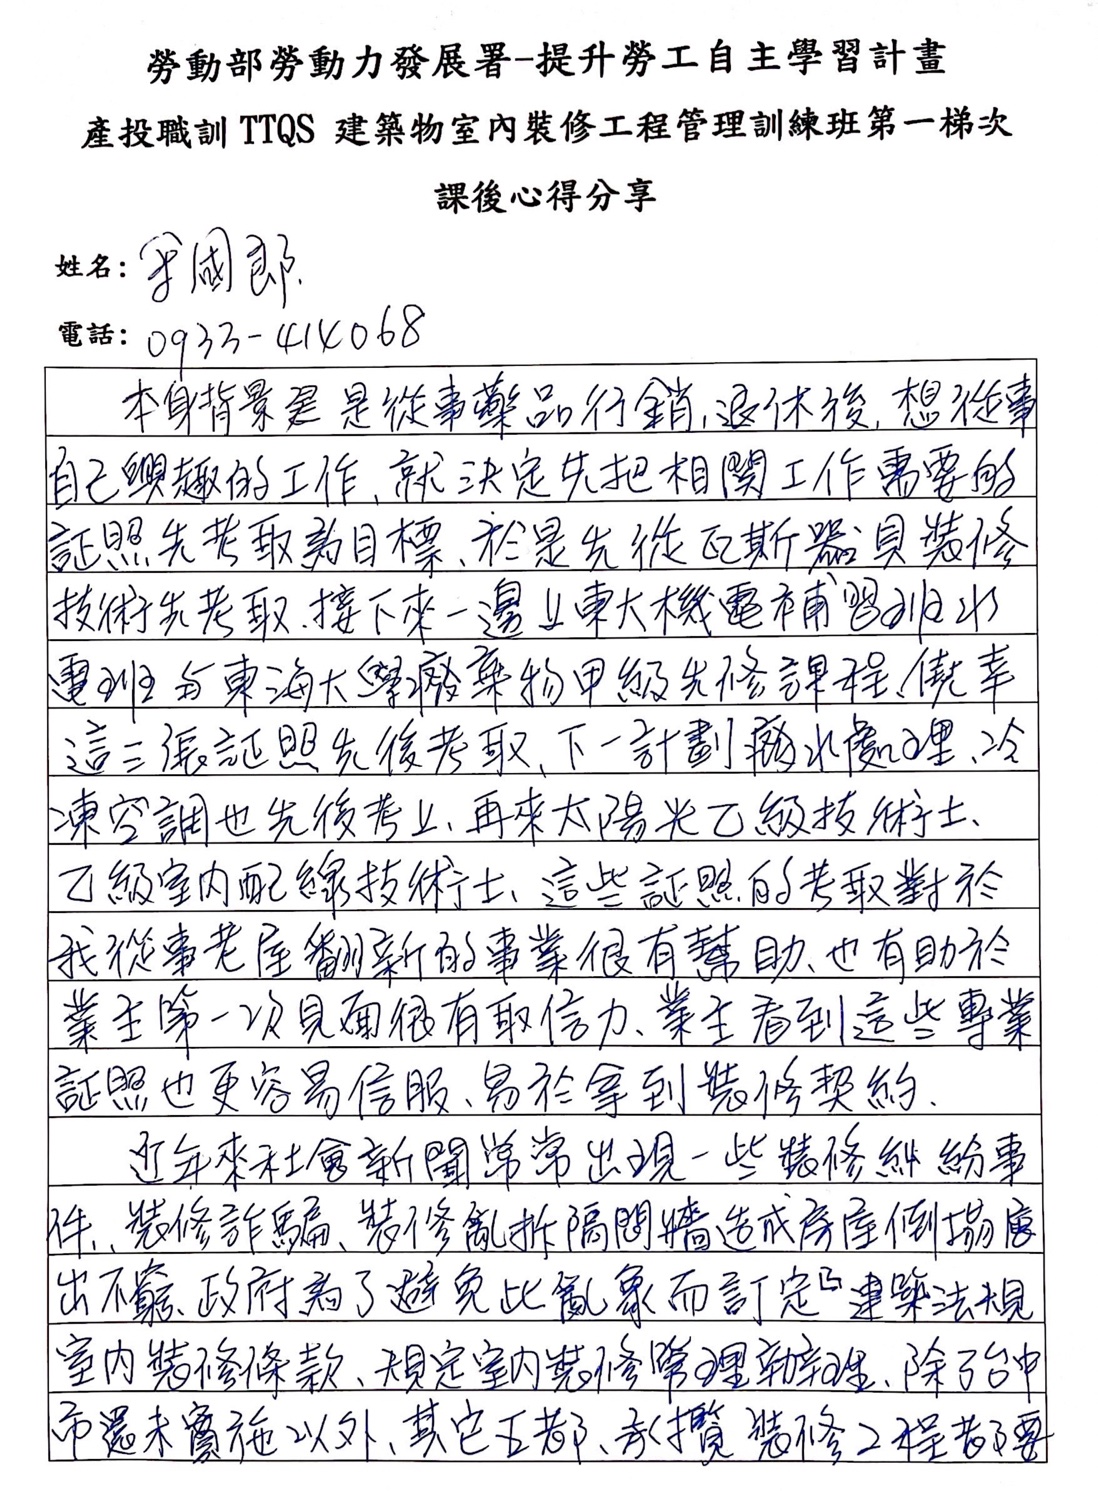 勞動部勞動力發展署-提升勞工自主學習計畫
產投職訓TTQS 建築物室內裝修工程管理訓練班第一梯次
課後心得分享
姓名：國郎.
電話：0933-414068
本身背景是從事藥品行銷,退休後,想從事
自己興趣的工作、就決定先把相關工作需要的
証照先考取為目標、於是先從瓦斯器具裝修
技術先考取.接下來一邊上東大機電補習班水
電班与東海大學廢棄物甲級先修課程、僥幸
這三張証照先後考取、下一計劃廢水處理、冷
凍空調也先後考上、再來太陽光乙級技術士、
乙級室內配線技術士、這些証照的考取對於
我從事老屋翻新的事業很有幫助、也有助於
業主第一次見面很有取信力、業主看到這些專業
証照也更容易信服、易於拿到裝修契約.
近年來社會新聞常常出現一些裝修糾紛事
件、裝修詐騙、裝修亂拆隔間牆造成房屋倒塌層
出不窮、政府為了避免此亂象而訂定「建築法規
室內裝修條款、規定室內裝修管理辦理、除了台中
市還未實施以外、其它五都、承攬裝修工程都要